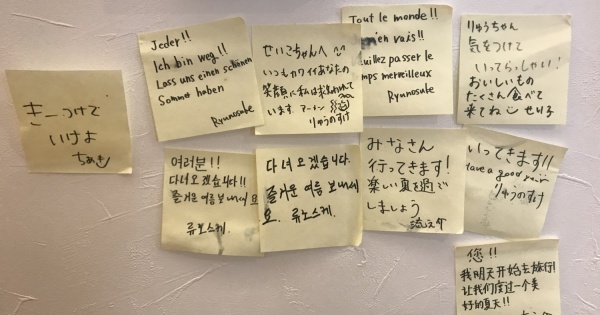 きーつけで
いけよ
ちあき
Jeder!!
Ich bin weg!!
Lass uns einen schönen
Sommer haben
Ryunosuke
せいこちゃんへ
いつもカワイイあなたの
笑顔に私は救われて
います アーメン
りゅうのすけ
Tout le monde!!
en vais!!
uillez passer le
mps merveilleux
Ryunosuke
りゅうちゃん
気をつけて
いってらっしゃい!
おいしいもの
たくさん食べて
来てね せい子
여러분!!
다녀오겠습니다!!
즐거운 여름 보내세요
류노스케.
다녀오겠습니다.
즐거운 여름 보내세
요. 류노스케.
みなさん
行ってきます!
楽しい夏を過ご
しましょう
いってきます!!
Have a good
りゅうのすけ
您!!
我明天开始去旅行!
让我们度过一个美
好的夏天!!